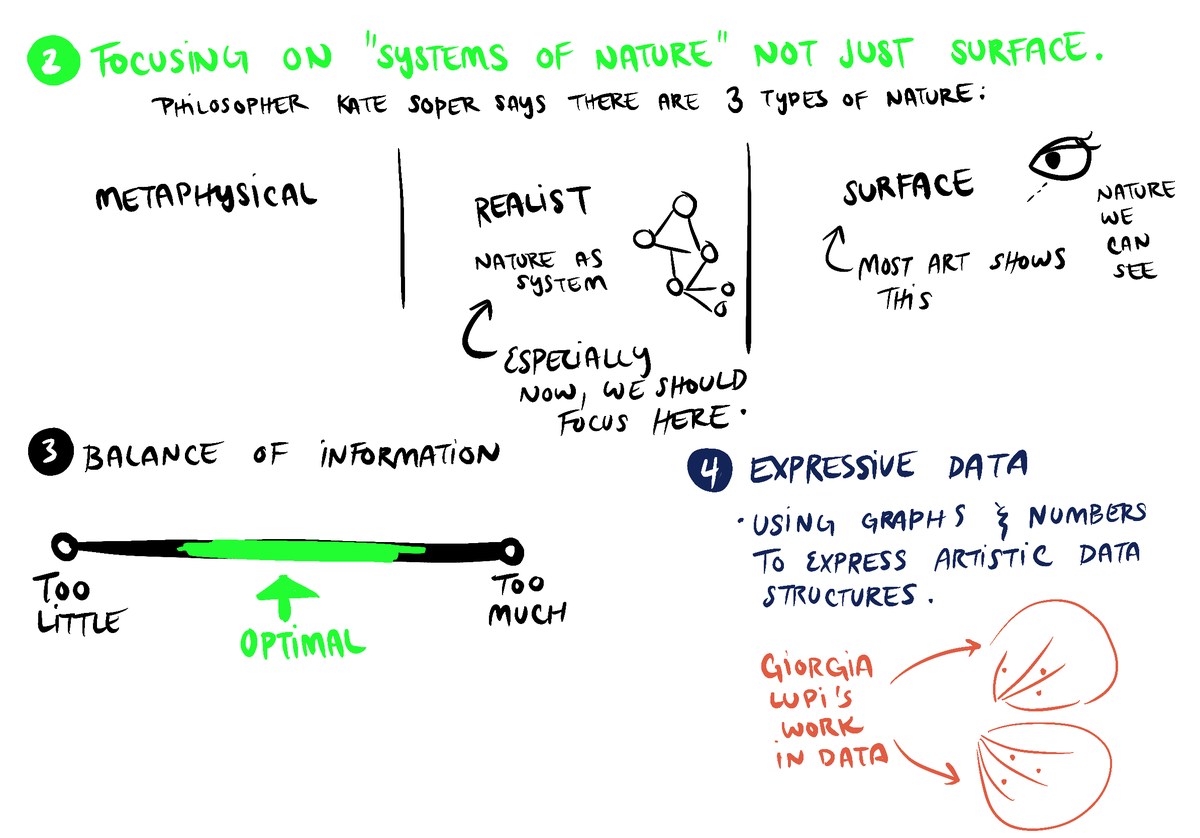 2 FOCUSING ON "SYSTEMS OF NATURE" NOT JUST SURFACE.
PHILOSOPHER KATE SOPER SAYS THERE ARE 3 TYPES OF NATURE:
METAPHYSICAL
REALIST
NATURE AS
SYSTEM
ESPECIALLY
NOW, WE SHOULD
FOCUS HERE.
SURFACE
MOST ART SHOWS
THIS
NATURE
WE
CAN
SEE
3 BALANCE OF INFORMATION
TOO
LITTLE
OPTIMAL
TOO
MUCH
4 EXPRESSIVE DATA
• USING GRAPHS & NUMBERS
TO EXPRESS ARTISTIC DATA
STRUCTURES.
GIORGIA
LUPI'S
WORK
IN DATA